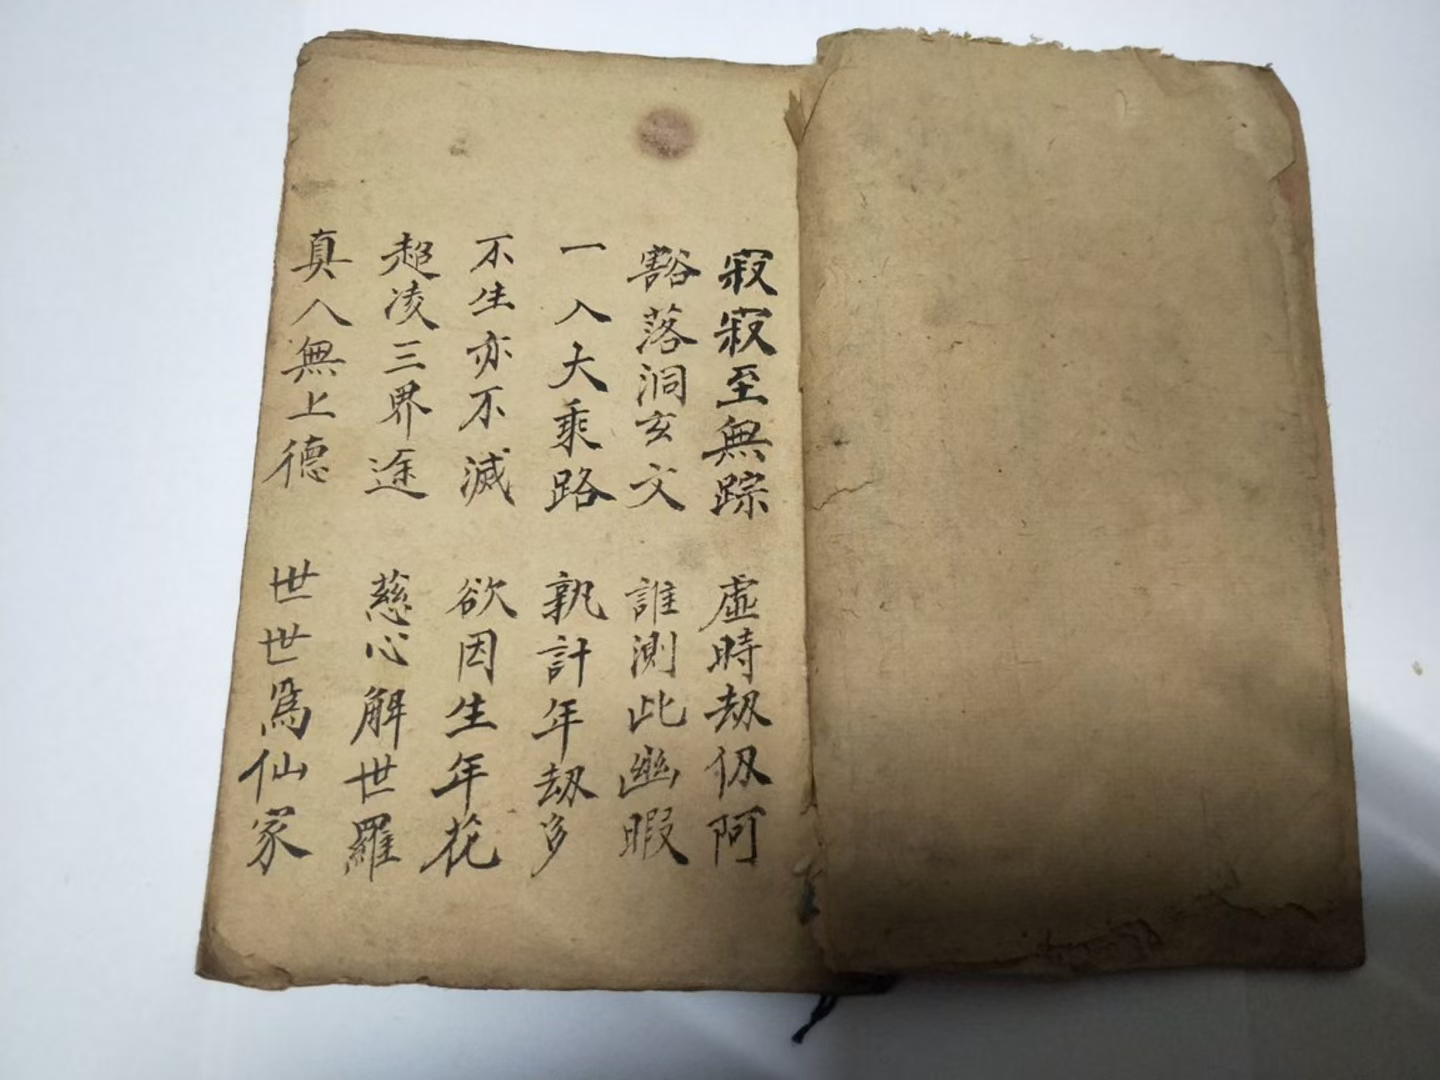 寂寂至無踪 虛時劫仭阿
豁落洞玄文 誰測此幽暇
一入大乘路 孰計年劫多
不生亦不滅 欲因生年花
超凌三界途 慈心解世羅
真人無上德 世世為仙家